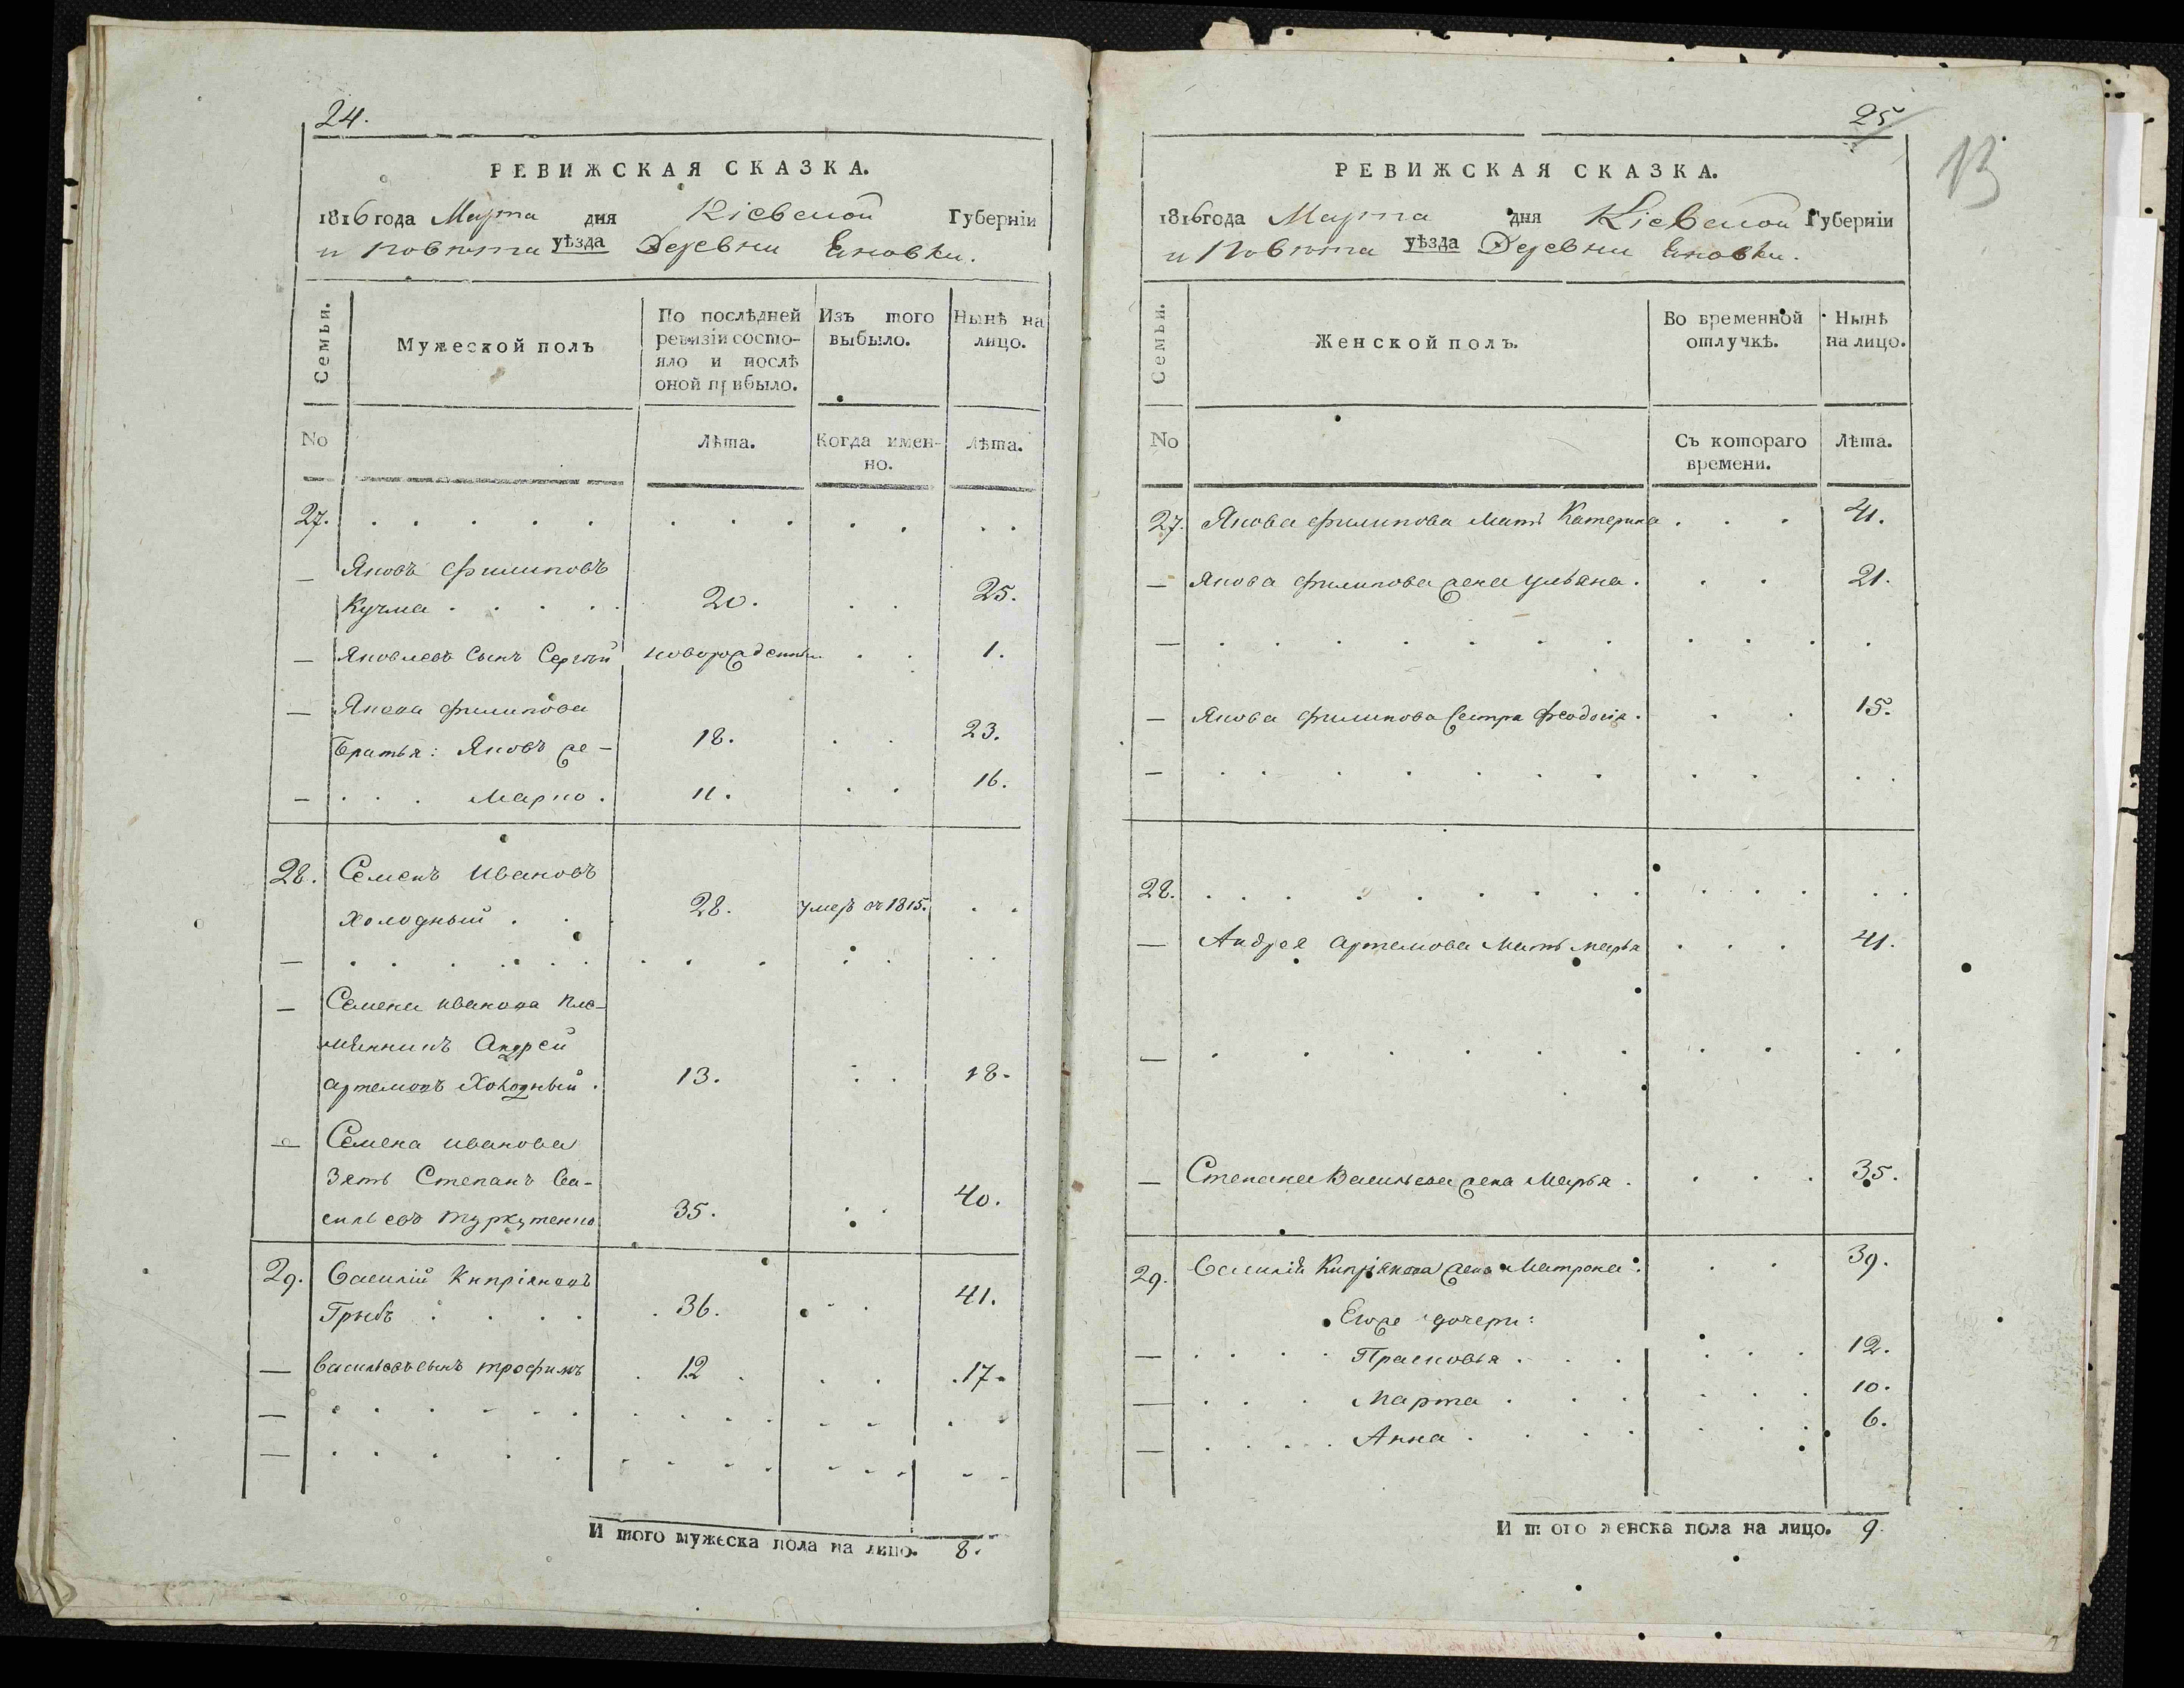 24.
РЕВИЖСКАЯ СКАЗКА.
1816 года Марта дня Кіевской Губерніи
и повѣта уѣзда Деревни Еновки.
Семьи.
Мужеской полъ
По послѣдней
ревизіи состо-
яло и послѣ
оной прибыло.
Изъ того
выбыло.
Нынѣ на
лицо.
No
Лѣта.
Когда имен-
но.
Лѣта.
27.
Яковъ Филиповъ
Кучма 20. 25.
Яковлевъ Сынъ Сергѣй новорожденны 1.
Якова Филипова
Братья: Яковъ же - 18. 23.
Марко. 11. 16.
28. Семенъ Ивановъ
Холодный 28. умеръ въ 1815.
Семена Иванова пле-
мянникъ Андрей
Артемовъ Холодный. 13. 18.
Семена Иванова
Зять Степанъ Ва-
сильевъ Туркутенко 35. 40.
29. Василій Кипріяновъ
Грибъ 36. 41.
Васильевъ сынъ Трофимъ 12 17.
И того мужеска пола на лицо. 8.
25
13
РЕВИЖСКАЯ СКАЗКА.
1816 года Марта дня Кіевской Губерніи
и Повѣта уѣзда Деревни Еновки.
Семьи.
Женской полъ.
Во временной
отлучкѣ.
Нынѣ
на лицо.
No
Съ котораго
времени.
Лѣта.
27. Якова Филипова Мать Катерина 41.
Якова Филипова жена Ульяна. 21.
Якова Филипова Сестра Феодосія. 15.
28.
Андрея Артемова Мать Марья 41.
Степана Васильева жена Марья. 35.
29. Василія Кипріянова жена Матрона. 39.
Егоже дочери:
Прасковья. 12.
Марта 10.
Анна. 6.
И того женска пола на лицо. 9.